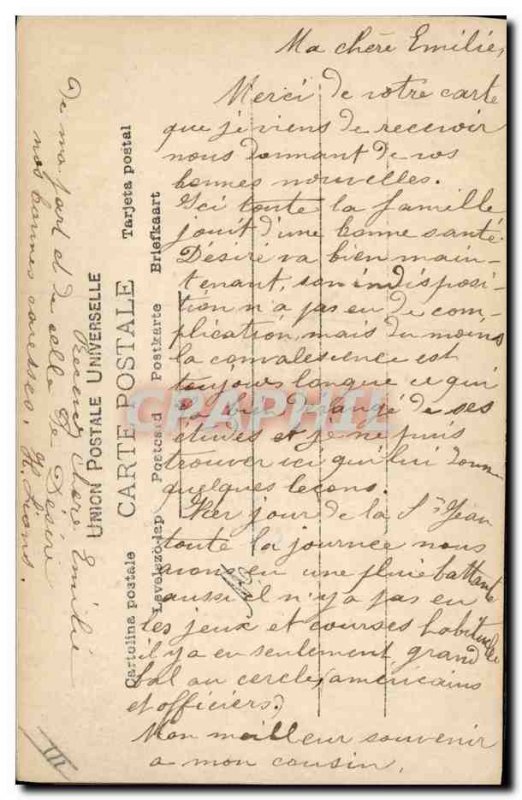 Ma chère Emilie,
Merci de votre carte
que je viens de recevoir
nous donnant de vos
bonnes nouvelles.
Ici toute la famille
jouit d'une bonne santé.
Désiré va bien main-
tenant, son indisposi-
tion n'a pas eu de com-
plication, mais du moins
la convalescence est
toujours longue ce qui
l'a bien dérangé de ses
études et je ne puis
trouver ici qui lui donne
quelques leçons.
Hier jour de la St Jean
toute la journée nous
avons eu une pluie battante
aussi il n'y a pas eu
les jeux et courses habituelles
il y a eu seulement grand
bal au cercle (américains
et officiers)
Mon meilleur souvenir
a mon cousin.
Recevez chère Emilie
De ma part et de celle de Désiré
nos bonnes caresses.
UNION POSTALE UNIVERSELLE
CARTE POSTALE
Cartolina postale Tarjeta postal
Levelező-lap Postcard Postkarte Briefkaart
III
CPAPHIL